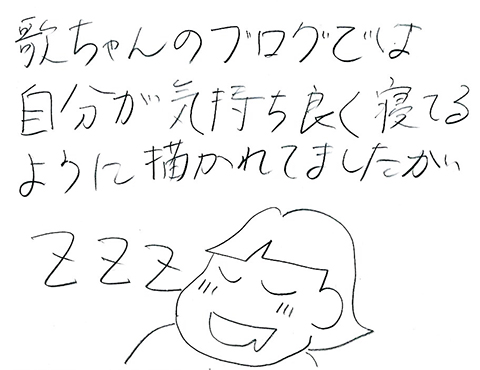 歌ちゃんのブログでは
自分が気持ち良く寝てる
ように描かれてましたが
ZZZ